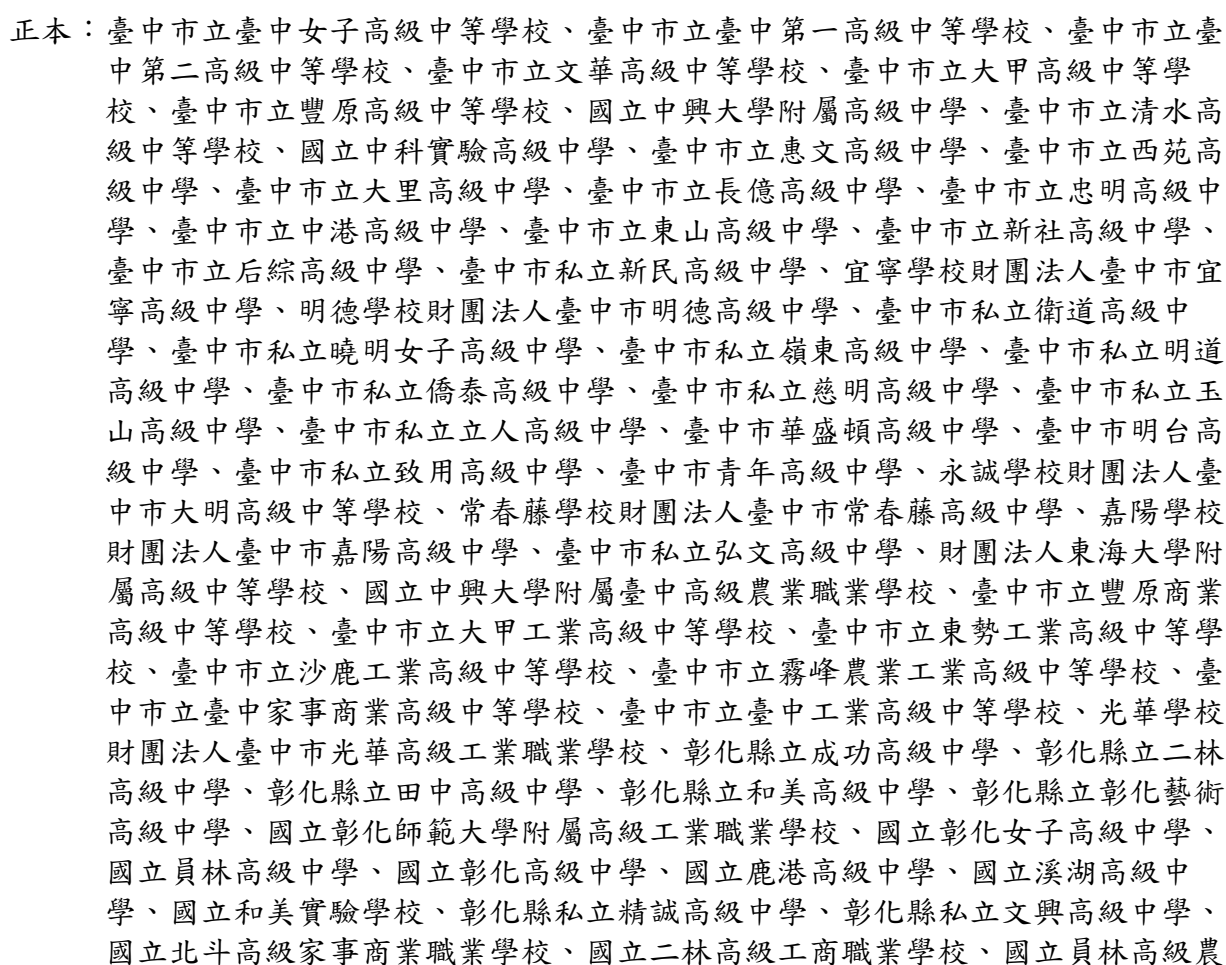 正本：臺中市立臺中女子高級中等學校、臺中市立臺中第一高級中等學校、臺中市立臺
中第二高級中等學校、臺中市立文華高級中等學校、臺中市立大甲高級中等學
校、臺中市立豐原高級中等學校、國立中興大學附屬高級中學、臺中市立清水高
級中等學校、國立中科實驗高級中學、臺中市立惠文高級中學、臺中市立西苑高
級中學、臺中市立大里高級中學、臺中市立長億高級中學、臺中市立忠明高級中
學、臺中市立中港高級中學、臺中市立東山高級中學、臺中市立新社高級中學、
臺中市立后綜高級中學、臺中市私立新民高級中學、宜寧學校財團法人臺中市宜
寧高級中學、明德學校財團法人臺中市明德高級中學、臺中市私立衛道高級中
學、臺中市私立曉明女子高級中學、臺中市私立嶺東高級中學、臺中市私立明道
高級中學、臺中市私立僑泰高級中學、臺中市私立慈明高級中學、臺中市私立玉
山高級中學、臺中市私立立人高級中學、臺中市華盛頓高級中學、臺中市明台高
級中學、臺中市私立致用高級中學、臺中市青年高級中學、永誠學校財團法人臺
中市大明高級中等學校、常春藤學校財團法人臺中市常春藤高級中學、嘉陽學校
財團法人臺中市嘉陽高級中學、臺中市私立弘文高級中學、財團法人東海大學附
屬高級中等學校、國立中興大學附屬臺中高級農業職業學校、臺中市立豐原商業
高級中等學校、臺中市立大甲工業高級中等學校、臺中市立東勢工業高級中等學
校、臺中市立沙鹿工業高級中等學校、臺中市立霧峰農業工業高級中等學校、臺
中市立臺中家事商業高級中等學校、臺中市立臺中工業高級中等學校、光華學校
財團法人臺中市光華高級工業職業學校、彰化縣立成功高級中學、彰化縣立二林
高級中學、彰化縣立田中高級中學、彰化縣立和美高級中學、彰化縣立彰化藝術
高級中學、國立彰化師範大學附屬高級工業職業學校、國立彰化女子高級中學、
國立員林高級中學、國立彰化高級中學、國立鹿港高級中學、國立溪湖高級中
學、國立和美實驗學校、彰化縣私立精誠高級中學、彰化縣私立文興高級中學、
國立北斗高級家事商業職業學校、國立二林高級工商職業學校、國立員林高級農